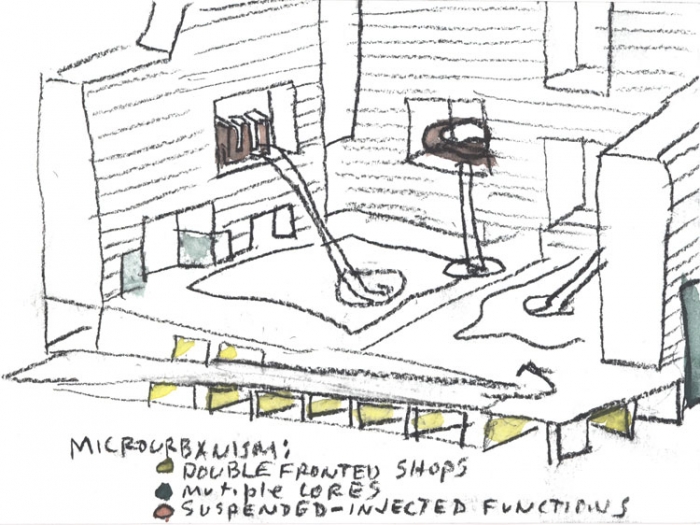 MICROURBANISM:
DOUBLE FRONTED SHOPS
MUTIPLE CORES
SUSPENDED-INJECTED FUNCTIONS